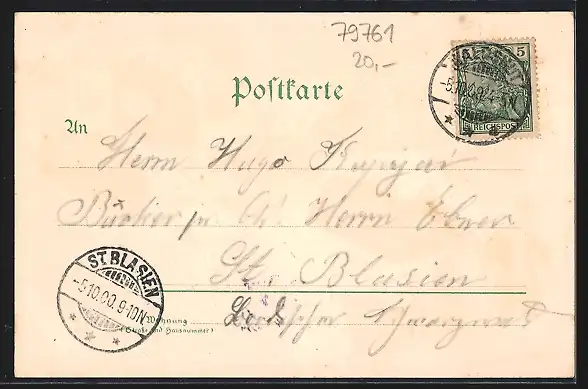 79761
20,-
5
REICHSPOST
-5.10.00.
Postkarte
An
Herrn Hugo
Bäcker Herrn Ebner
St. Blasien
ST. BLASIEN
-5.10.00.9-10N
Wohnung
(Straße und Hausnummer)